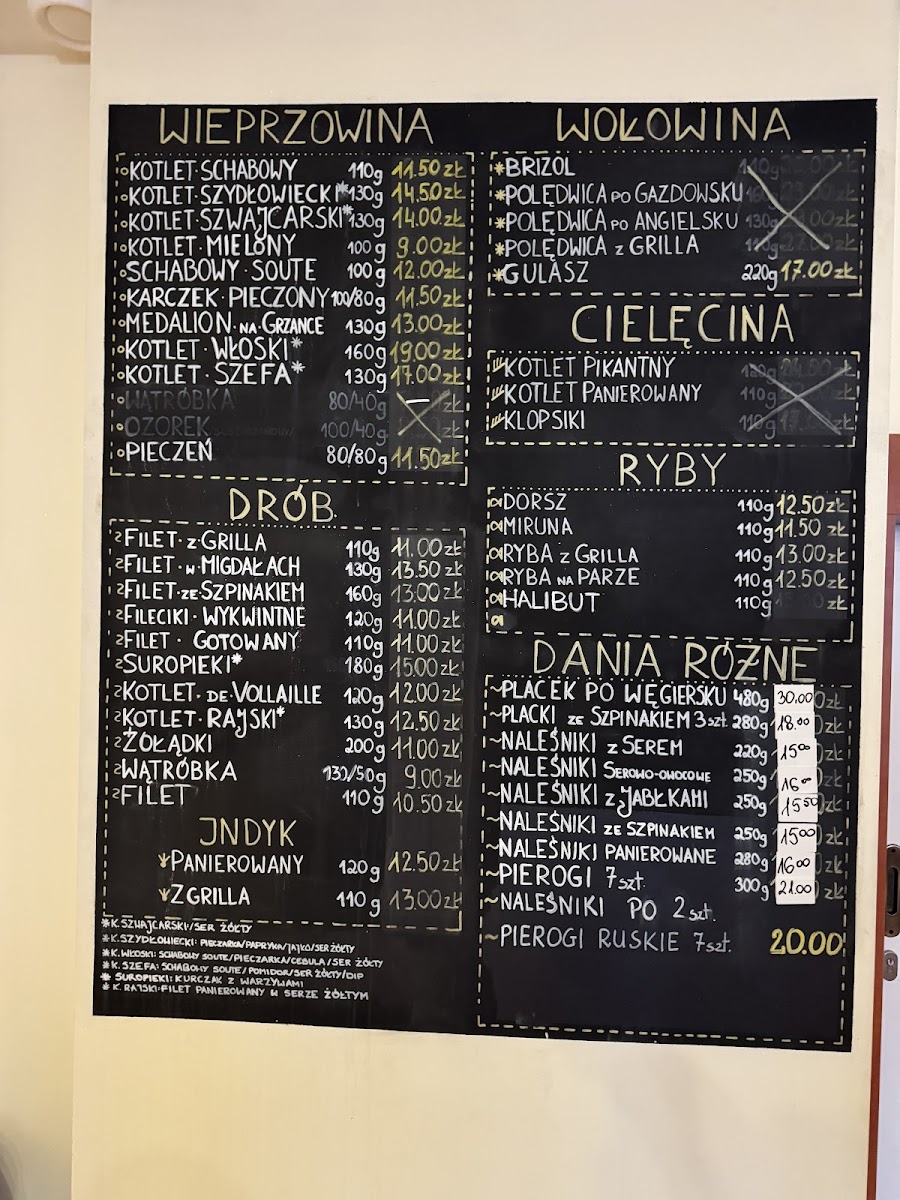 WIEPRZOWINA
KOTLET SCHABOWY 110g 11.50 zł
KOTLET SZYDŁOWIECKI* 130g 14.50 zł
KOTLET SZWAJCARSKI* 130g 14.00 zł
KOTLET MIELONY 100g 9.00 zł
SCHABOWY SOUTE 100g 12.00 zł
KARCZEK PIECZONY 100/80g 11.50 zł
MEDALION NA GRZANCE 130g 13.00 zł
KOTLET WŁOSKI* 160g 19.00 zł
KOTLET SZEFA* 130g 17.00 zł
WĄTRÓBKA 80/40g zł
OZOREK 100/40g zł
PIECZEŃ 80/80g 11.50 zł
DRÓB
FILET z GRILLA 110g 11.00 zł
FILET w MIGDAŁACH 130g 13.50 zł
FILET ze SZPINAKIEM 160g 13.00 zł
FILECIKI WYKWINTNE 120g 11.00 zł
FILET GOTOWANY 110g 11.00 zł
SUROPIEKI* 180g 15.00 zł
KOTLET DE VOLLAILLE 120g 12.00 zł
KOTLET RAJSKI* 130g 12.50 zł
ŻOŁĄDKI 200g 11.00 zł
WĄTRÓBKA 130/50g 9.00 zł
FILET 110g 10.50 zł
JNDYK
PANIEROWANY 120g 12.50 zł
Z GRILLA 110g 13.00 zł
* K. SZWAJCARSKI/SER ŻÓŁTY
* K. SZYDŁOWIECKI: PIECZARKA/PAPRYKA/JAJKO/SER ŻÓŁTY
* K. WŁOSKI: SCHABOWY SOUTE/PIECZARKA/CEBULA/SER ŻÓŁTY
* K. SZEFA: SCHABOWY SOUTE/POMIDOR/SER ŻÓŁTY/DIP
* SUROPIEKI: KURCZAK Z WARZYWAMI
* K. RAJSKI: FILET PANIEROWANY W SERZE ŻÓŁTYM
WOŁOWINA
*BRIZOL 110g zł
*POLĘDWICA PO GAZDOWSKU zł
*POLĘDWICA PO ANGIELSKU 130g zł
*POLĘDWICA z GRILLA 110g zł
*GULASZ 220g 17.00 zł
CIELĘCINA
KOTLET PIKANTNY 120g zł
KOTLET PANIEROWANY 110g
KLOPSIKI 110g zł
RYBY
DORSZ 110g 12.50 zł
MIRUNA 110g 11.50 zł
RYBA z GRILLA 110g 13.00 zł
RYBA NA PARZE 110g 12.50 zł
HALIBUT 110g zł
DANIA RÓŻNE
~PLACEK PO WĘGIERSKU 480g 30.00 zł
~PLACKI ze SZPINAKIEM 3 szt. 280g 18.00 zł
~NALEŚNIKI z SEREM 220g 15.00 zł
~NALEŚNIKI SEROWO-OWOCOWE 250g 16.00 zł
~NALEŚNIKI z JABŁKAMI 250g 15.50 zł
~NALEŚNIKI ZE SZPINAKIEM 250g 15.00 zł
~NALEŚNIKI PANIEROWANE 280g 16.00 zł
~PIEROGI 7 szt. 300g 21.00 zł
~NALEŚNIKI PO 2 szt.
~PIEROGI RUSKIE 7 szt. 20.00